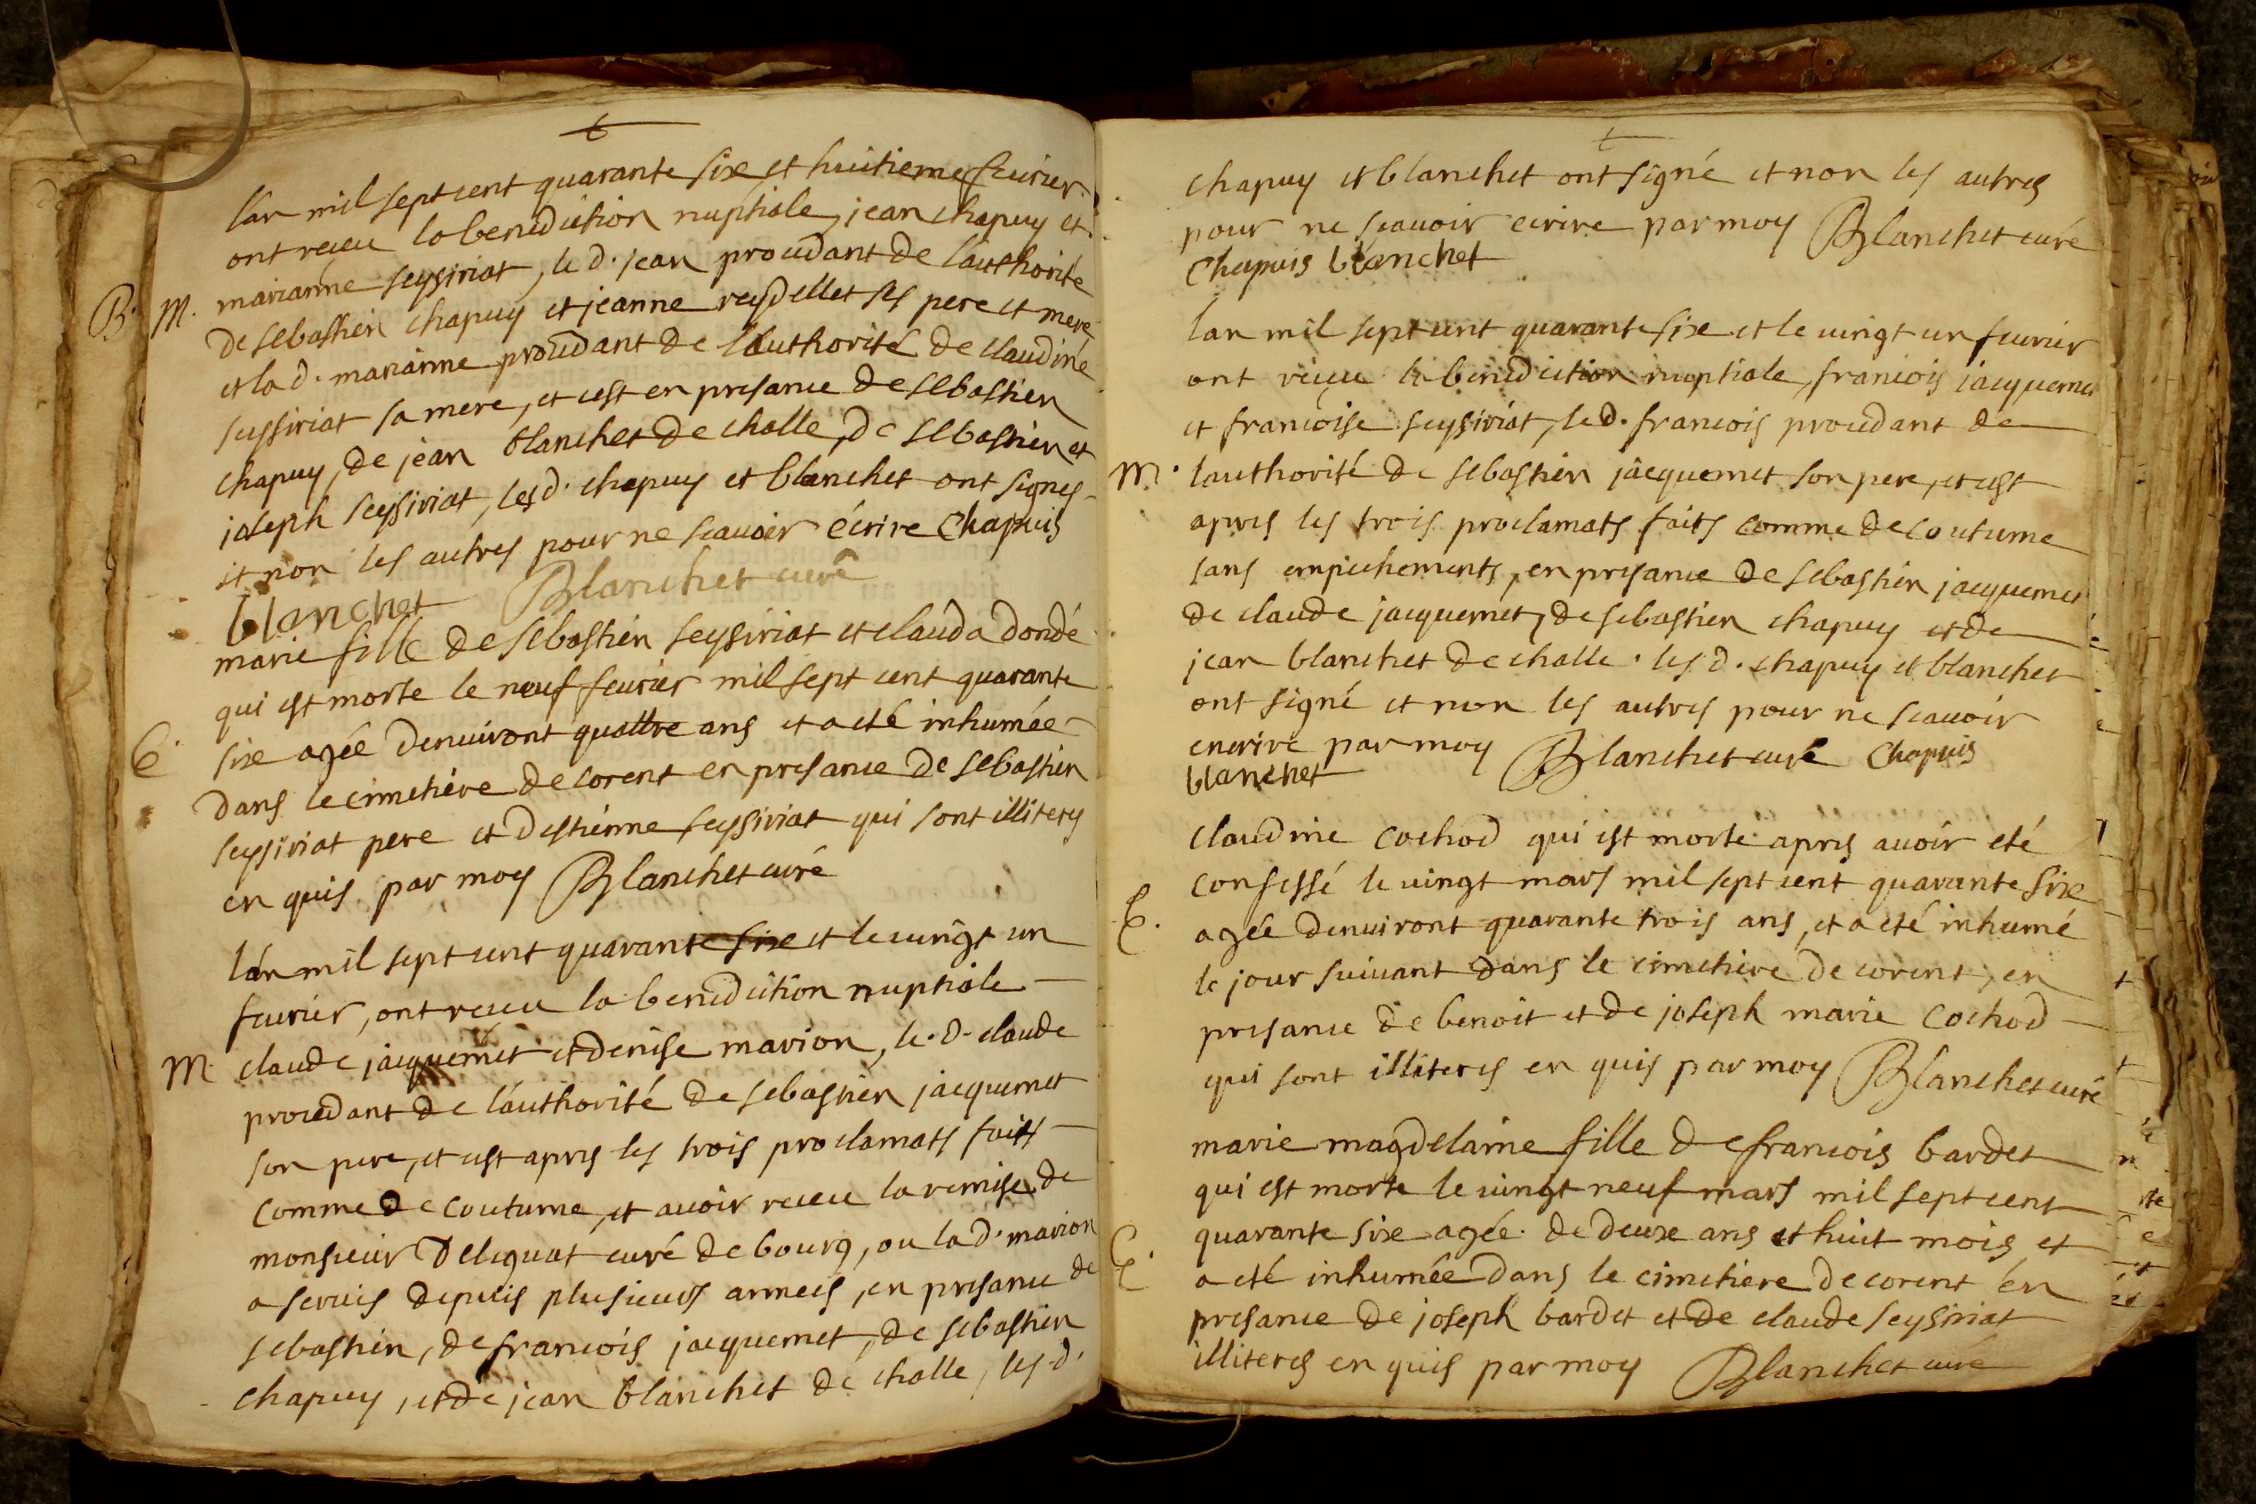 lan mil sept cent quarante sixe et huitieme feurier
ont receu la benediction nuptiale, jean chapuy et
B. M. marianne seysiriat, le d. jean procedant de lauthorité
de sebastien chapuy et jeanne reydellet ses pere et mere
et la d. marianne procedant de lauthorité de claudine
seyssiriat sa mere, et cest en presance de sebastien
chapuy, de jean blanchet de challe, de sebastien et
joseph seysiriat, les d. chapuy et blanchet ont signes
et non les autres pour ne scauoir écrire Chapuis
blanchet Blanchet curé
marie fille de sebastien seysiriat et clauda dondé
qui est morte le neuf feurier mil sept cent quarante
E. sixe agée denuiront quattre ans et a eté inhumée
dans le cimetiere de corent en presance de sebastien
seysiriat pere et destienne seysiriat qui sont illiters
en quis par moy Blanchet curé
lan mil sept cent quarante sixe et le vingt un
feurier, ont receu la benediction nuptiale
M. claude jacquemet et denise marion, le. d. claude
procedant de lauthorité de sebastien jacquemet
son pere, et cest apres les trois proclamats faits
comme de coutume, et avoir receu la remise de
monsieur deliquat curé de bourg, ou la d. marion
a seruis depuis plusieurs annees, en presance de
sebastien, de francois jacquemet, de sebastien
chapuy, et de jean blanchet de challe, les d.
chapuy et blanchet ont signé et non les autres
pour ne scauoir ecrire par moy Blanchet curé
Chapuis blanchet
lan mil sept cent quarante sixe et le vingt un feurier
ont receu la benediction nuptiale, francois jacquemet
et francoise seysiriat, le d. francois procedant de
M. lauthorité de sebastien jacquemet son pere, et cest
apres les trois proclamats faits comme de coutume
sans empechements, en presance de sebastien jacquemet
de claude jacquemet, de sebastien chapuy et de
jean blanchet de challe. les d. chapuy et blanchet
ont signé et non les autres pour ne scauoir
encrire par moy Blanchet curé Chapuis
blanchet
claudine cochod qui est morte apres auoir eté
confessé le vingt mars mil sept cent quarante sixe
E. agée denuiront quarante trois ans, et a eté inhumé
le jour suiuant dans le cimetiere de corent, en
presance de benoit et de joseph marie cochod
qui sont illiteres en quis par moy Blanchet curé
marie magdelaine fille de francois bardet
qui est morte le vingt neuf mars mil sept cent
quarante sixe agée. de deuxe ans et huit mois et
E. a eté inhumée dans le cimetiere de corent en
presance de joseph bardet et de claude seysiriat
illiteres en quis par moy Blanchet curé